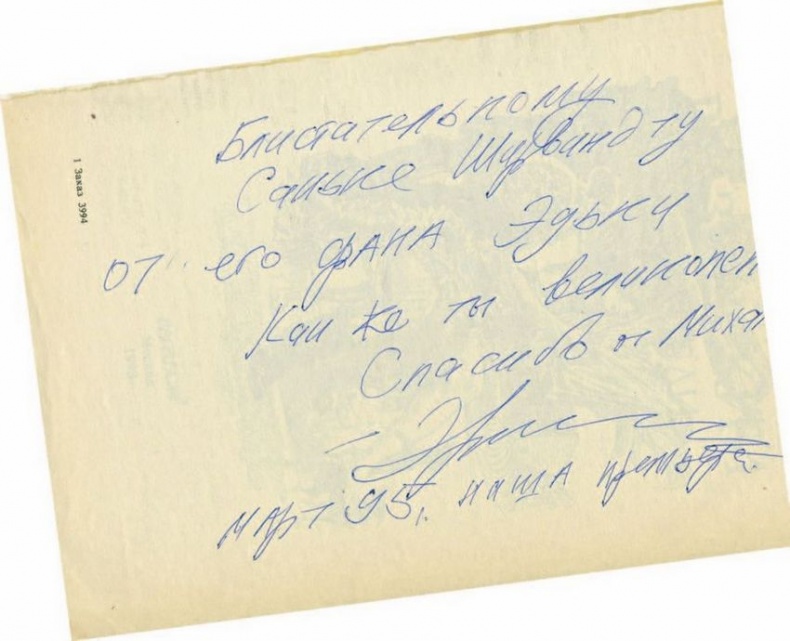 1 Заказ 3994
Блистательному
Саньке Ширвиндту
от его фана Эдьки
Как же ты великолеп
Спасибо от Миха
март 95г. наша премьера.